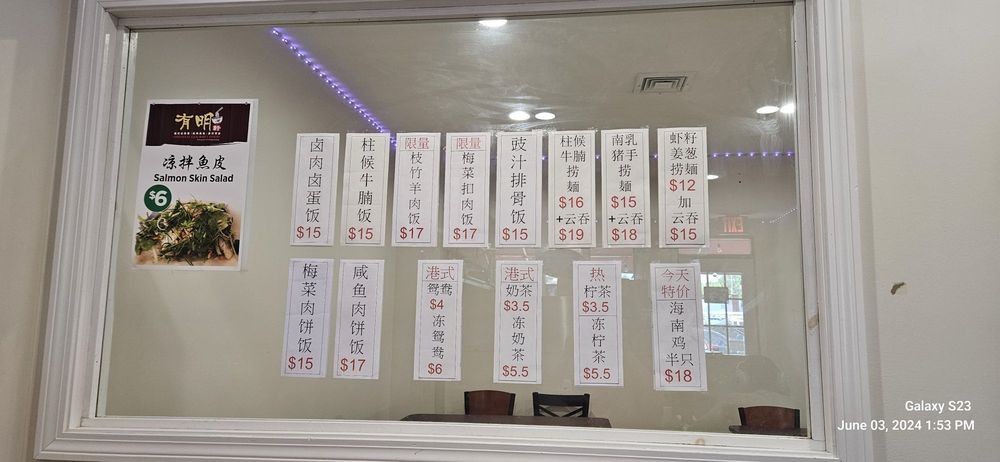 有明軒
凉拌魚皮
Salmon Skin Salad
$6
卤肉卤蛋饭
$15
柱候牛腩饭
$15
限量
枝竹羊肉饭
$17
限量
梅菜扣肉饭
$17
豉汁排骨饭
$15
柱候
牛腩
捞
麺
$16
+云吞
$19
南乳
猪手
捞
麺
$15
+云吞
$18
虾籽
姜葱
捞麺
$12
加
云吞
$15
梅菜肉饼饭
$15
咸鱼肉饼饭
$17
港式
鸳鸯
$4
冻鸳鸯
$6
港式
奶茶
$3.5
冻奶茶
$5.5
热
柠茶
$3.5
冻柠茶
$5.5
今天
特价
海南鸡
半只
$18
EXIT
Galaxy S23
June 03, 2024 1:53 PM